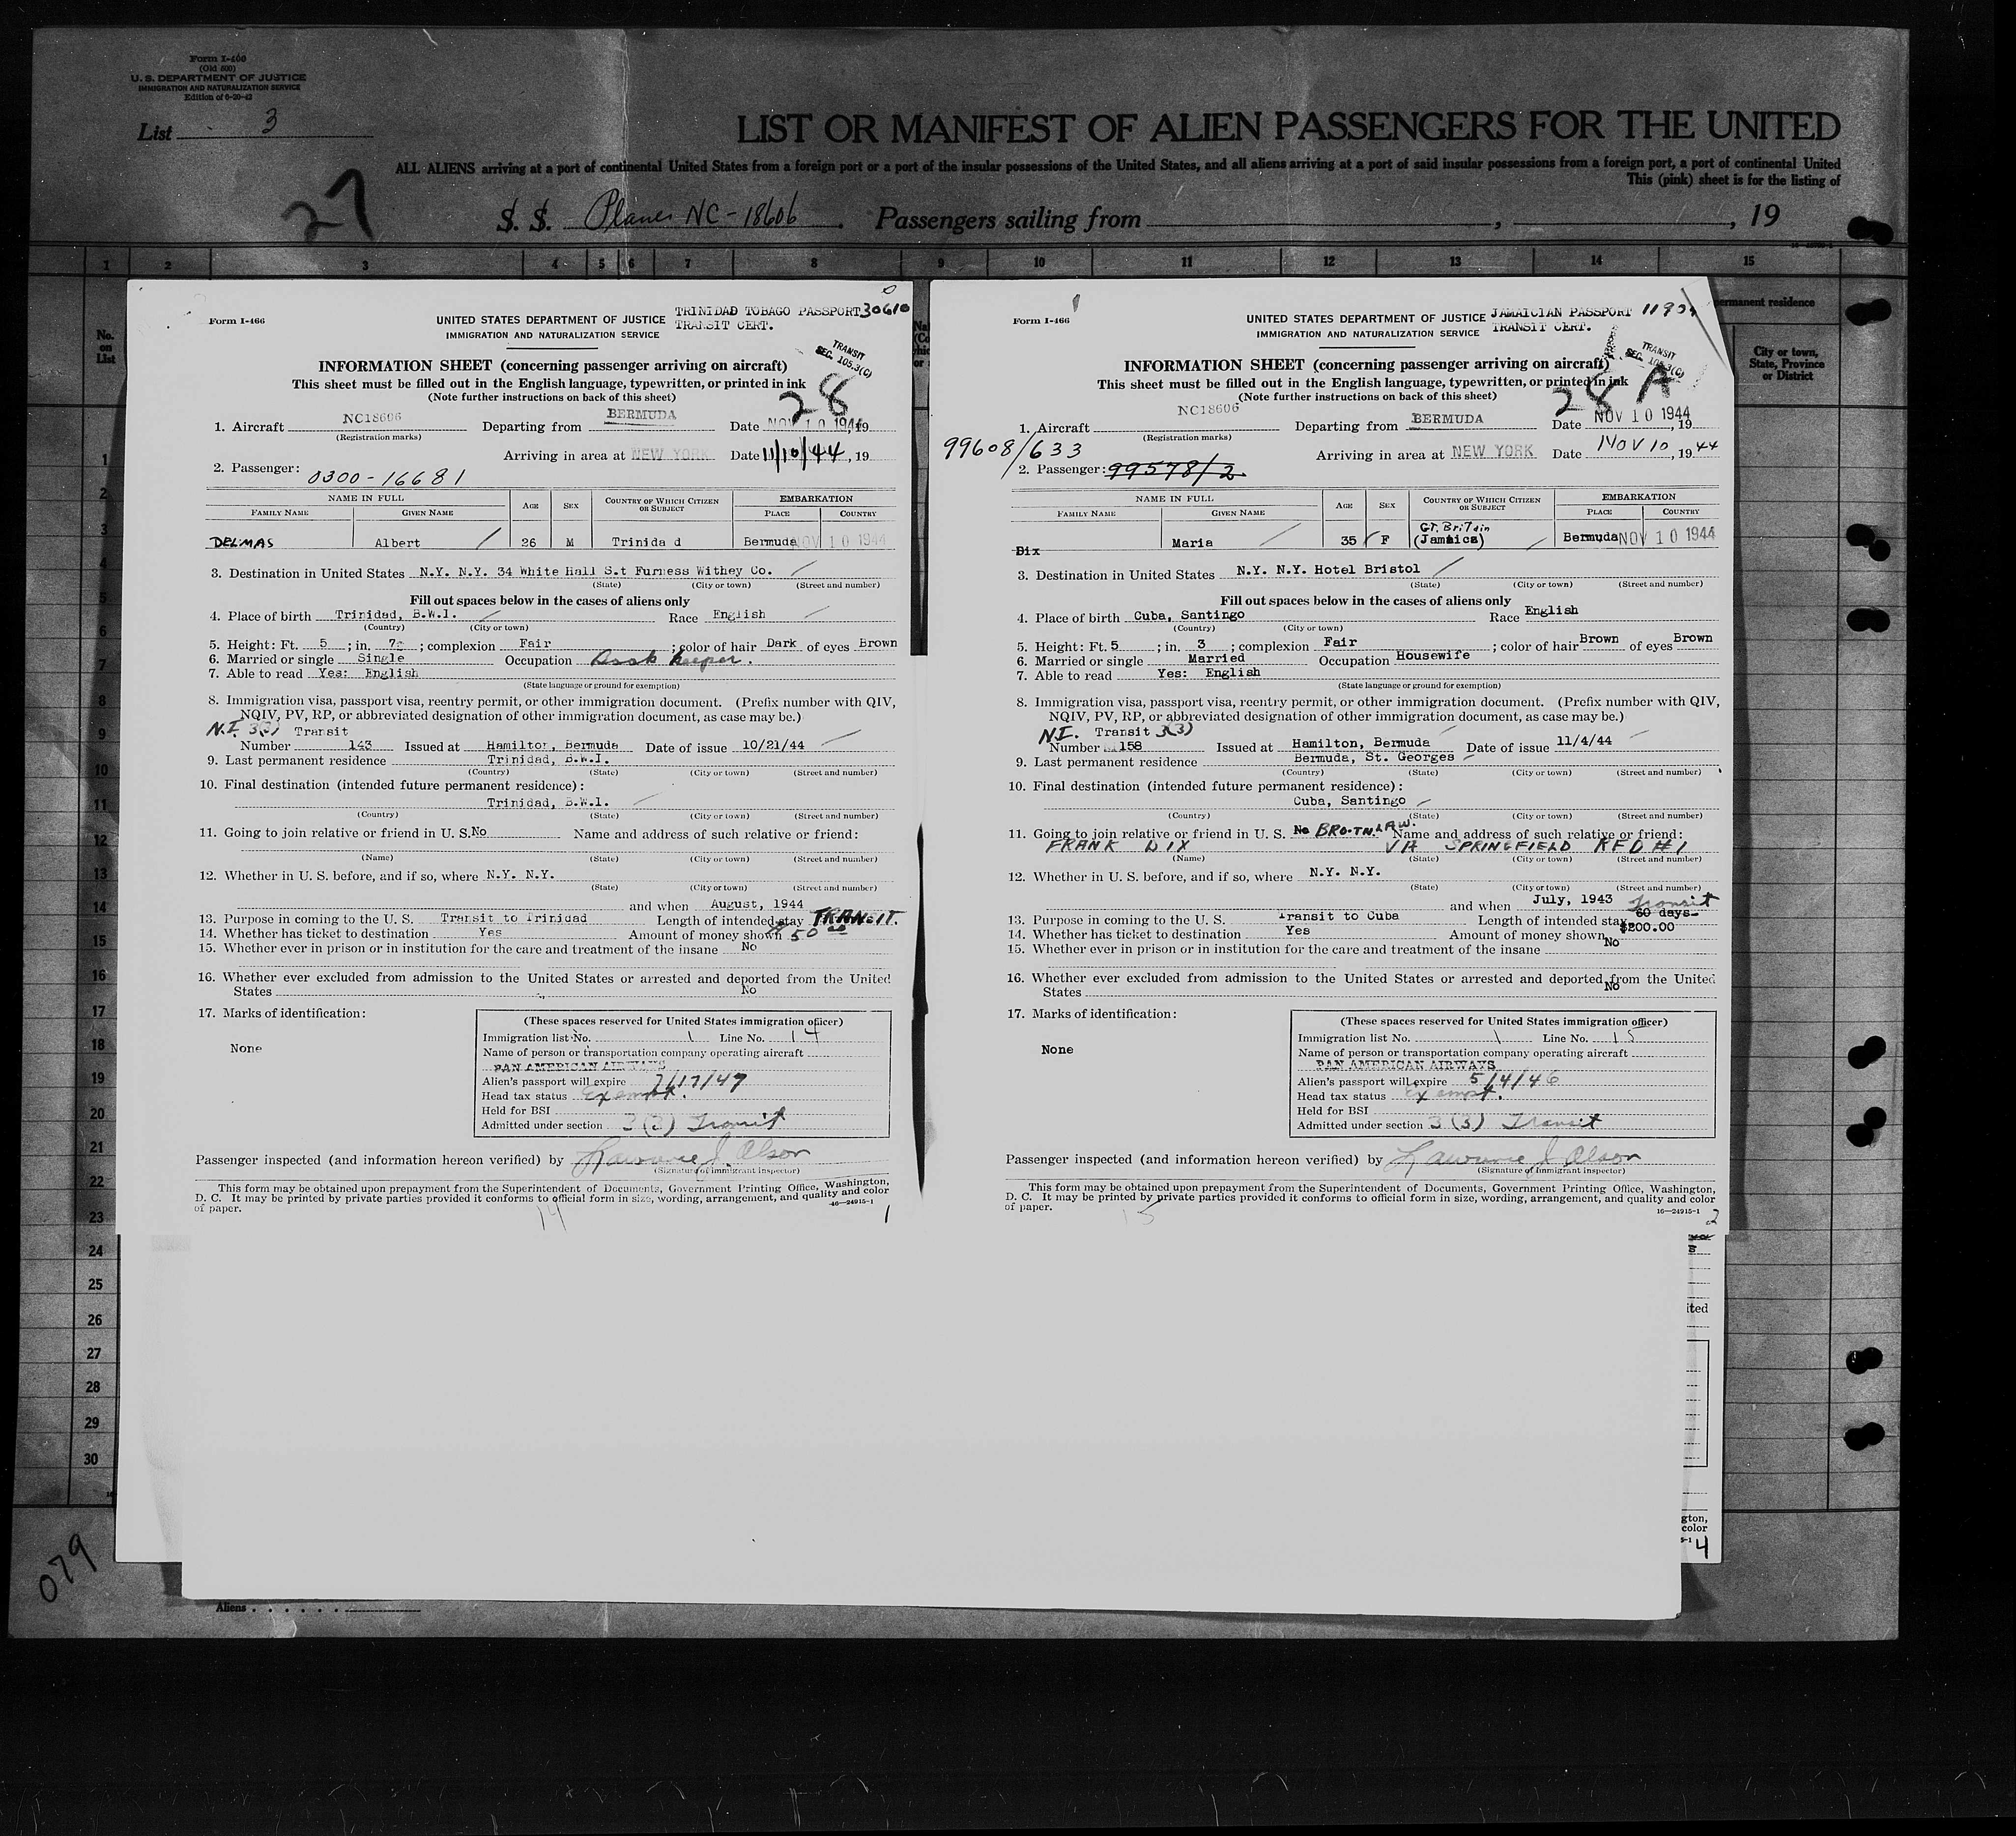 Form I-400
(Old 500)
U. S. DEPARTMENT OF JUSTICE
IMMIGRATION AND NATURALIZATION SERVICE
Edition of 6-20-42
List 3
LIST OR MANIFEST OF ALIEN PASSENGERS FOR THE UNITED
ALL ALIENS arriving at a port of continental United States from a foreign port or a port of the insular possessions of the United States, and all aliens arriving at a port of said insular possessions from a foreign port, a port of continental United
This (pink) sheet is for the listing of
27
S. S. Planes NC-18606. Passengers sailing from , , 19
1 2 3 4 5 6 7 8 9 10 11 12 13 14 15
No.
on
List
permanent residence
City or town,
State, Province
or District
1
2
3
4
5
6
7
8
9
10
11
12
13
14
15
16
17
18
19
20
21
22
23
24
25
26
27
28
29
30
Form I-466
UNITED STATES DEPARTMENT OF JUSTICE
IMMIGRATION AND NATURALIZATION SERVICE
TRINIDAD TOBAGO PASSPORT 30610
TRANSIT CERT.
TRANSIT
SEC. 105.3(C)
INFORMATION SHEET (concerning passenger arriving on aircraft)
This sheet must be filled out in the English language, typewritten, or printed in ink
(Note further instructions on back of this sheet)
28
1. Aircraft NC18606 Departing from BERMUDA Date NOV 10 1944, 19
(Registration marks)
Arriving in area at NEW YORK Date 11/10/44, 19
2. Passenger: 0300-16681
NAME IN FULL AGE SEX COUNTRY OF WHICH CITIZEN OR SUBJECT EMBARKATION
FAMILY NAME GIVEN NAME PLACE COUNTRY
DELMAS Albert 26 M Trinida d Bermuda NOV 10 1944
3. Destination in United States N.Y. N.Y. 34 White Hall S.t Furness Withey Co.
(State) (City or town) (Street and number)
Fill out spaces below in the cases of aliens only
4. Place of birth Trinidad, B.W.I. Race English
(Country) (City or town)
5. Height: Ft. 5; in. 7; complexion Fair; color of hair Dark of eyes Brown
6. Married or single Single Occupation Book keeper.
7. Able to read Yes: English
(State language or ground for exemption)
8. Immigration visa, passport visa, reentry permit, or other immigration document. (Prefix number with QIV,
NQIV, PV, RP, or abbreviated designation of other immigration document, as case may be.)
N.I. 3(3) Transit
Number 143 Issued at Hamilton, Bermuda Date of issue 10/21/44
9. Last permanent residence Trinidad, B.W.I.
(Country) (State) (City or town) (Street and number)
10. Final destination (intended future permanent residence):
Trinidad, B.W.I.
(Country) (State) (City or town) (Street and number)
11. Going to join relative or friend in U. S. No Name and address of such relative or friend:
(Name) (State) (City or town) (Street and number)
12. Whether in U. S. before, and if so, where N.Y. N.Y.
(State) (City or town) (Street and number)
and when August, 1944
13. Purpose in coming to the U. S. Transit to Trinidad Length of intended stay TRANSIT.
14. Whether has ticket to destination Yes Amount of money shown 50 00
15. Whether ever in prison or in institution for the care and treatment of the insane No
16. Whether ever excluded from admission to the United States or arrested and deported from the United
States No
17. Marks of identification:
None
(These spaces reserved for United States immigration officer)
Immigration list No. 1 Line No. 14
Name of person or transportation company operating aircraft
PAN AMERICAN AIRWAYS
Alien's passport will expire 7/17/47
Head tax status Exempt.
Held for BSI
Admitted under section 3(3) Transit
Passenger inspected (and information hereon verified) by Lawrence J. Olson
(Signature of immigrant inspector)
This form may be obtained upon prepayment from the Superintendent of Documents, Government Printing Office, Washington,
D. C. It may be printed by private parties provided it conforms to official form in size, wording, arrangement, and quality and color
of paper.
16—24915-1
14
1
Form I-466
UNITED STATES DEPARTMENT OF JUSTICE
IMMIGRATION AND NATURALIZATION SERVICE
JAMAICIAN PASSPORT
TRANSIT CERT.
TRANSIT
SEC. 105.3(C)
INFORMATION SHEET (concerning passenger arriving on aircraft)
This sheet must be filled out in the English language, typewritten, or printed in ink
(Note further instructions on back of this sheet)
28 A
1. Aircraft NC18606 Departing from BERMUDA Date NOV 10 1944, 19
(Registration marks)
99608/633
Arriving in area at NEW YORK Date NOV 10, 1944
2. Passenger: 99578/2
NAME IN FULL AGE SEX COUNTRY OF WHICH CITIZEN OR SUBJECT EMBARKATION
FAMILY NAME GIVEN NAME PLACE COUNTRY
Dix Maria 35 F GT. Britain (Jamaica) Bermuda NOV 10 1944
3. Destination in United States N.Y. N.Y. Hotel Bristol
(State) (City or town) (Street and number)
Fill out spaces below in the cases of aliens only
4. Place of birth Cuba, Santingo Race English
(Country) (City or town)
5. Height: Ft. 5; in. 3; complexion Fair; color of hair Brown of eyes Brown
6. Married or single Married Occupation Housewife
7. Able to read Yes: English
(State language or ground for exemption)
8. Immigration visa, passport visa, reentry permit, or other immigration document. (Prefix number with QIV,
NQIV, PV, RP, or abbreviated designation of other immigration document, as case may be.)
N.I. Transit 3(3)
Number 158 Issued at Hamilton, Bermuda Date of issue 11/4/44
9. Last permanent residence Bermuda, St. Georges
(Country) (State) (City or town) (Street and number)
10. Final destination (intended future permanent residence):
Cuba, Santingo
(Country) (State) (City or town) (Street and number)
11. Going to join relative or friend in U. S. No BRO-TN. LAW. Name and address of such relative or friend:
FRANK DIX VA SPRINGFIELD RFD #1
(Name) (State) (City or town) (Street and number)
12. Whether in U. S. before, and if so, where N.Y. N.Y.
(State) (City or town) (Street and number)
and when July, 1943 Transit
13. Purpose in coming to the U. S. Transit to Cuba Length of intended stay 60 days
14. Whether has ticket to destination Yes Amount of money shown $200.00
15. Whether ever in prison or in institution for the care and treatment of the insane No
16. Whether ever excluded from admission to the United States or arrested and deported from the United
States No
17. Marks of identification:
None
(These spaces reserved for United States immigration officer)
Immigration list No. 1 Line No. 15
Name of person or transportation company operating aircraft
PAN AMERICAN AIRWAYS
Alien's passport will expire 5/4/46
Head tax status Exempt.
Held for BSI
Admitted under section 3(3) Transit
Passenger inspected (and information hereon verified) by Lawrence J Olson
(Signature of immigrant inspector)
This form may be obtained upon prepayment from the Superintendent of Documents, Government Printing Office, Washington,
D. C. It may be printed by private parties provided it conforms to official form in size, wording, arrangement, and quality and color
of paper.
16—24915-1
15
2
ited
gton,
color
5-1 4
079
Aliens